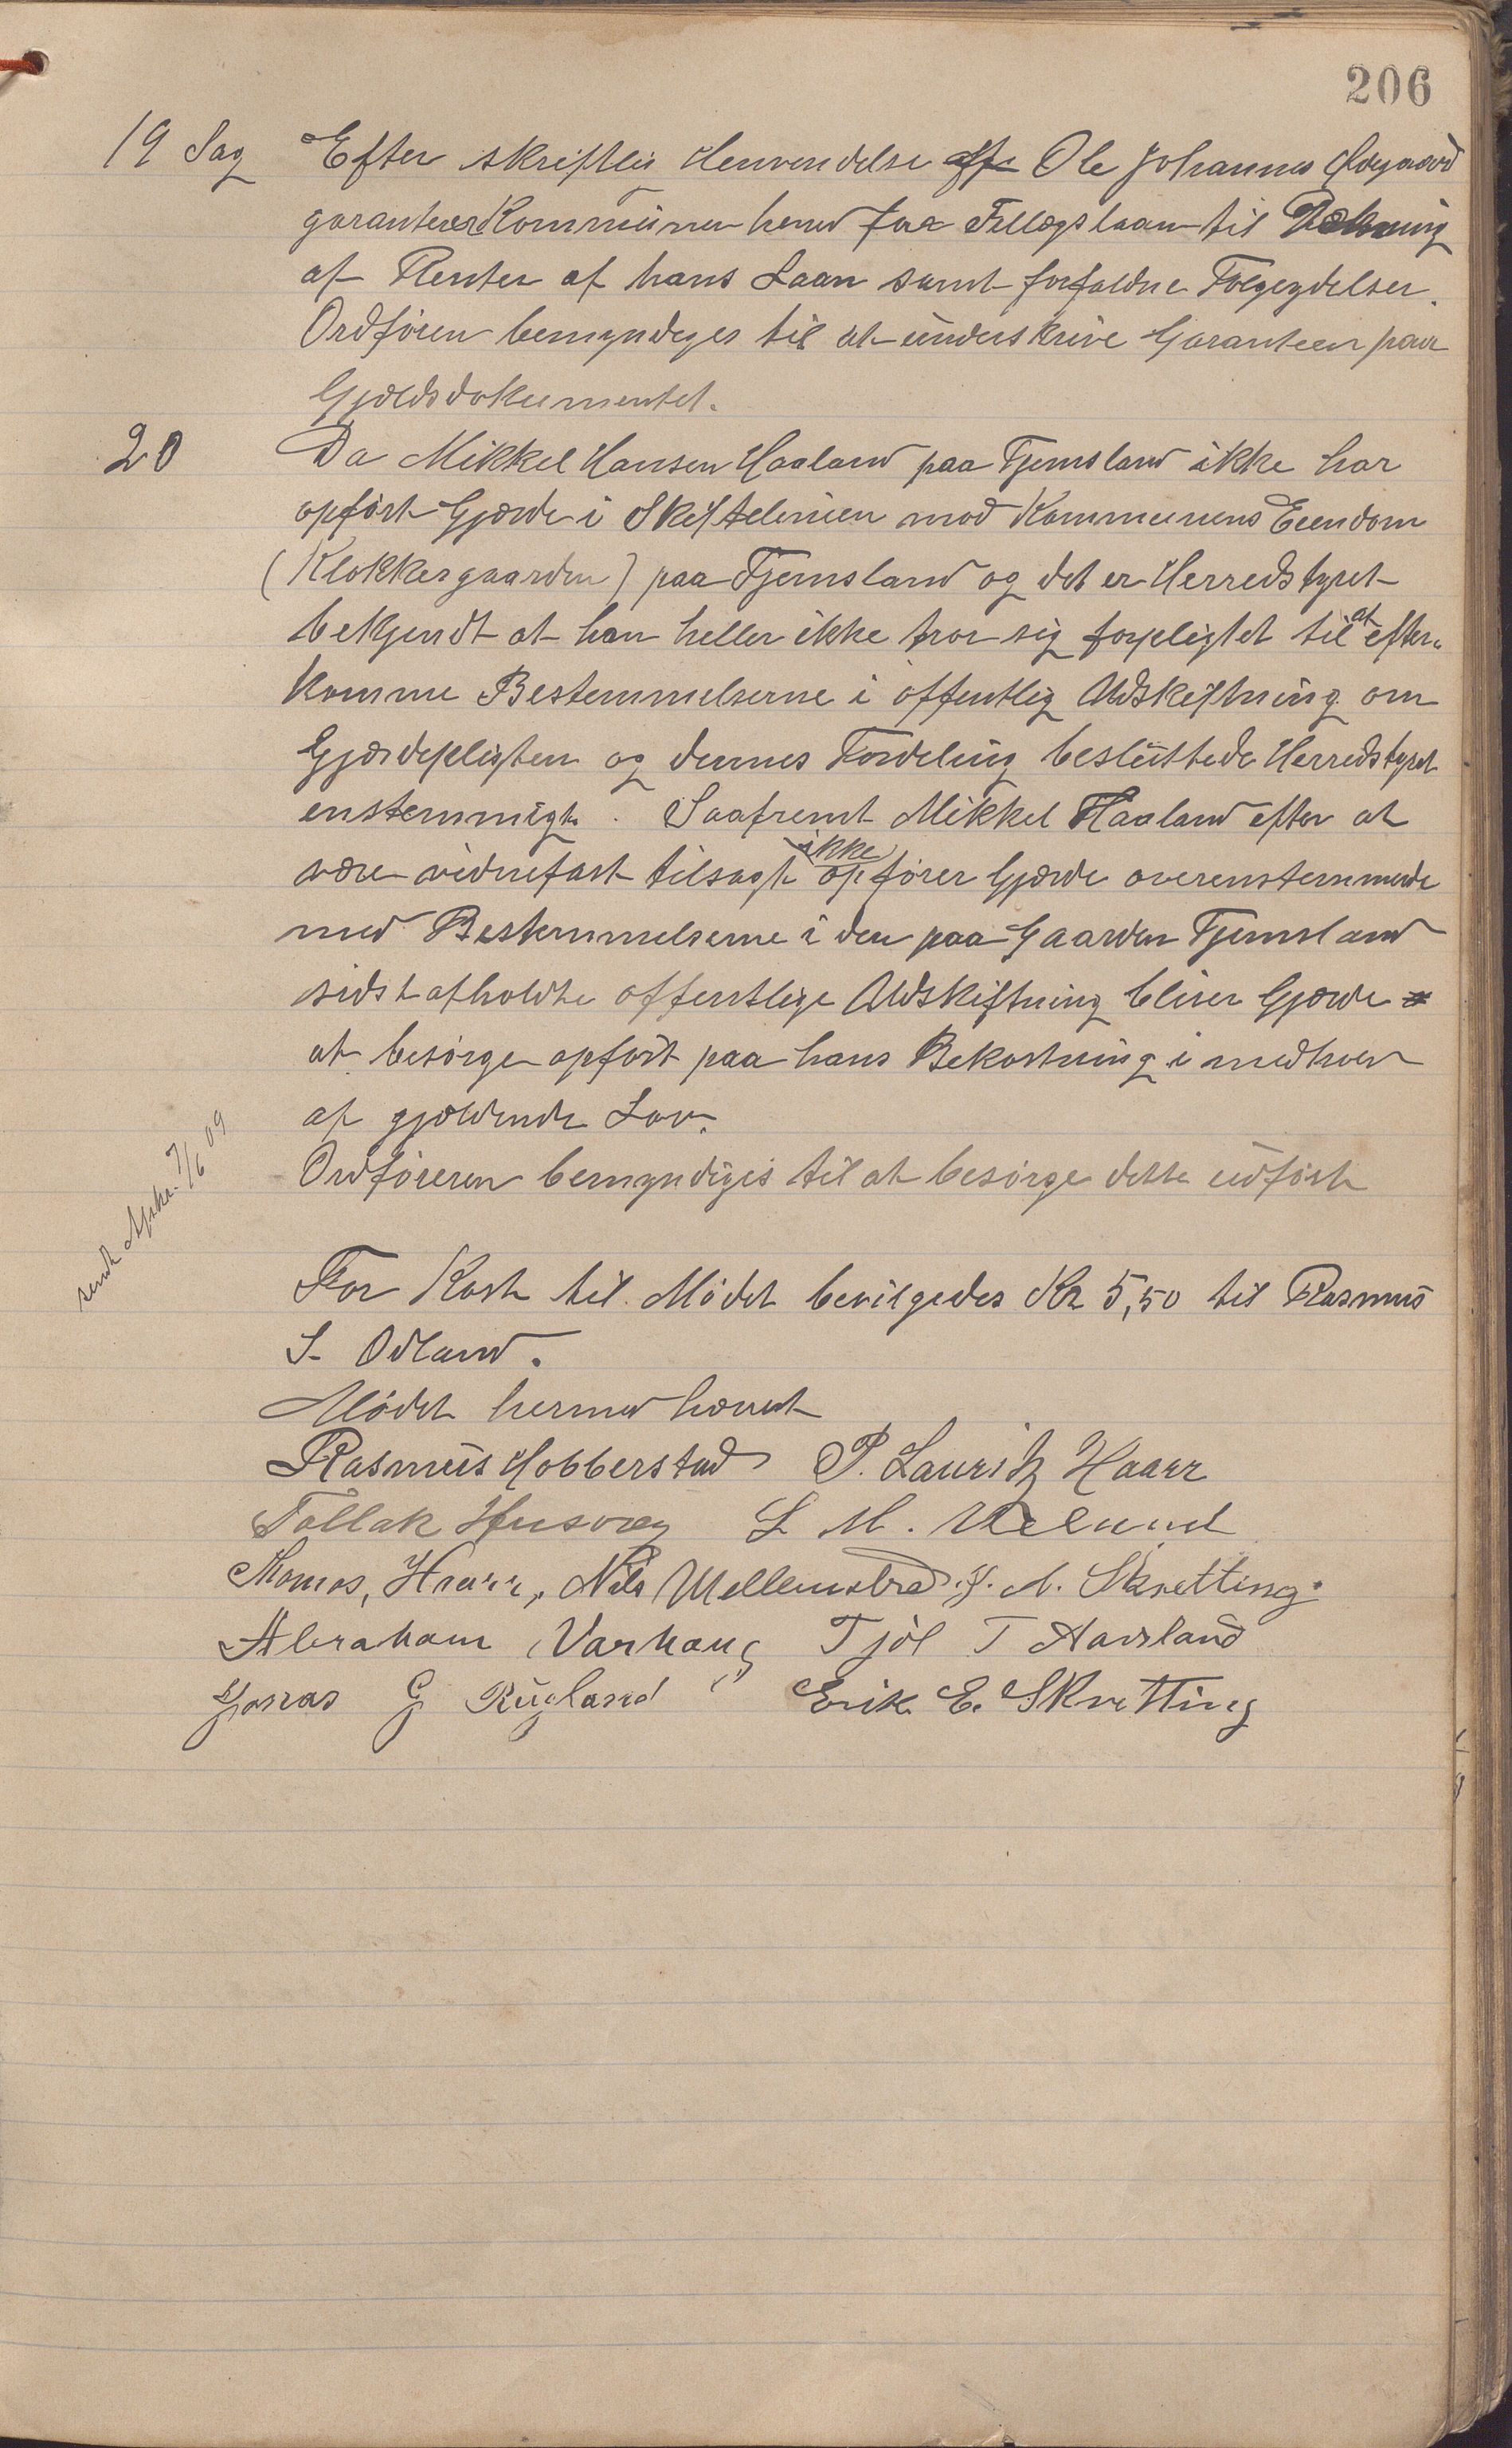 206
19 Sag Efter skriftlig Henvendelse Ole Johannes
garanterer Kommunen herved for Tillægslaan til Dækning
af Renter af hans Laan samt forfaldne Følgeydelser.
Ordføren bemyndiges til at underskrive Garantien paa
Gjældsdokumentet.
20 Da Mikkel Hansen Haaland paa Tjemsland ikke har
opført Gjærde i Skiftelinien mod Kommunens Eiendom
(Klokkergaarden) paa Tjemsland og det er Herredstyret
bekjendt at han heller ikke tror sig forpligtet til at efter-
komme Bestemmelserne i offentlig Udskiftning om
Gjærdepligten og dennes Fordeling besluttede Herredstyret
enstemmigt. Saafremt Mikkel Haaland efter at
være vidnefast tilsagt ikke opfører Gjærde overenstemmende
med Bestemmelserne i den paa Gaarden Tjemsland
sidst afholdte offentlige Udskiftning bliver Gjærde
at besørge opført paa hans Bekostning i medhold
af gjældende Lov.
Ordføreren bemyndiges til at besørge dette udført
sendt Afskr. 7/6 09
For Kost til Mødet bevilgedes Kr 5,50 til Rasmus
S. Odland.
Mødet hermed hævet
Rasmus Hobberstad P. Lauritz Haarr
Tollak Husvæg L M.
Thomas, Haarr, Nils Mellemstrad. J. A. Skretting.
Abraham Varhaug Tjøl T Aarsland
Jonas G Rugland Erik E. Skretting